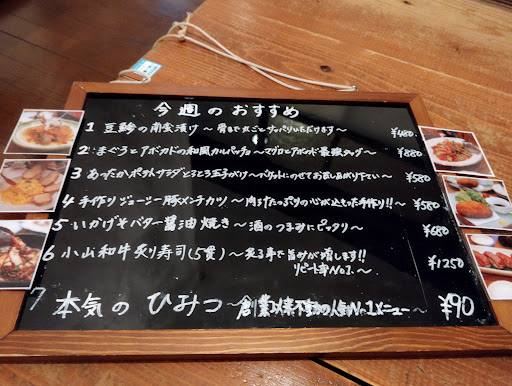 今週のおすすめ
1 豆鯵の南蛮漬け～骨まで丸ごとサッパリいただけます～ ¥480
2 まぐろとアボカドの和風カルパッチョ～マグロとアボカド最強タッグ～ ¥880
3 あったかポテトサラダとろとろ玉子がけ～バゲットにのせてお召し上がり下さい～ ¥580
4 手作りジューシー豚メンチカツ～肉汁たっぷりの心が込もった手作り!!～ ¥580
5 いかげそバター醤油焼き～酒のつまみにピッタリ～ ¥680
6 小山和牛炙り寿司(5貫)～炙る事で旨みが増します!! ¥1250
リピート率No.1.～
7 本気のひみつ～創業以来不動の人気No.1メニュー～ ¥90